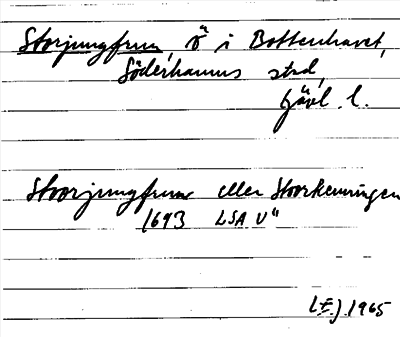 Storjungfrun, ö i Bottenhavet,
Söderhamns stad,
Gävl. l.
Stoorjungfrun eller Stoorkenningen
1693 LSA U"
1965